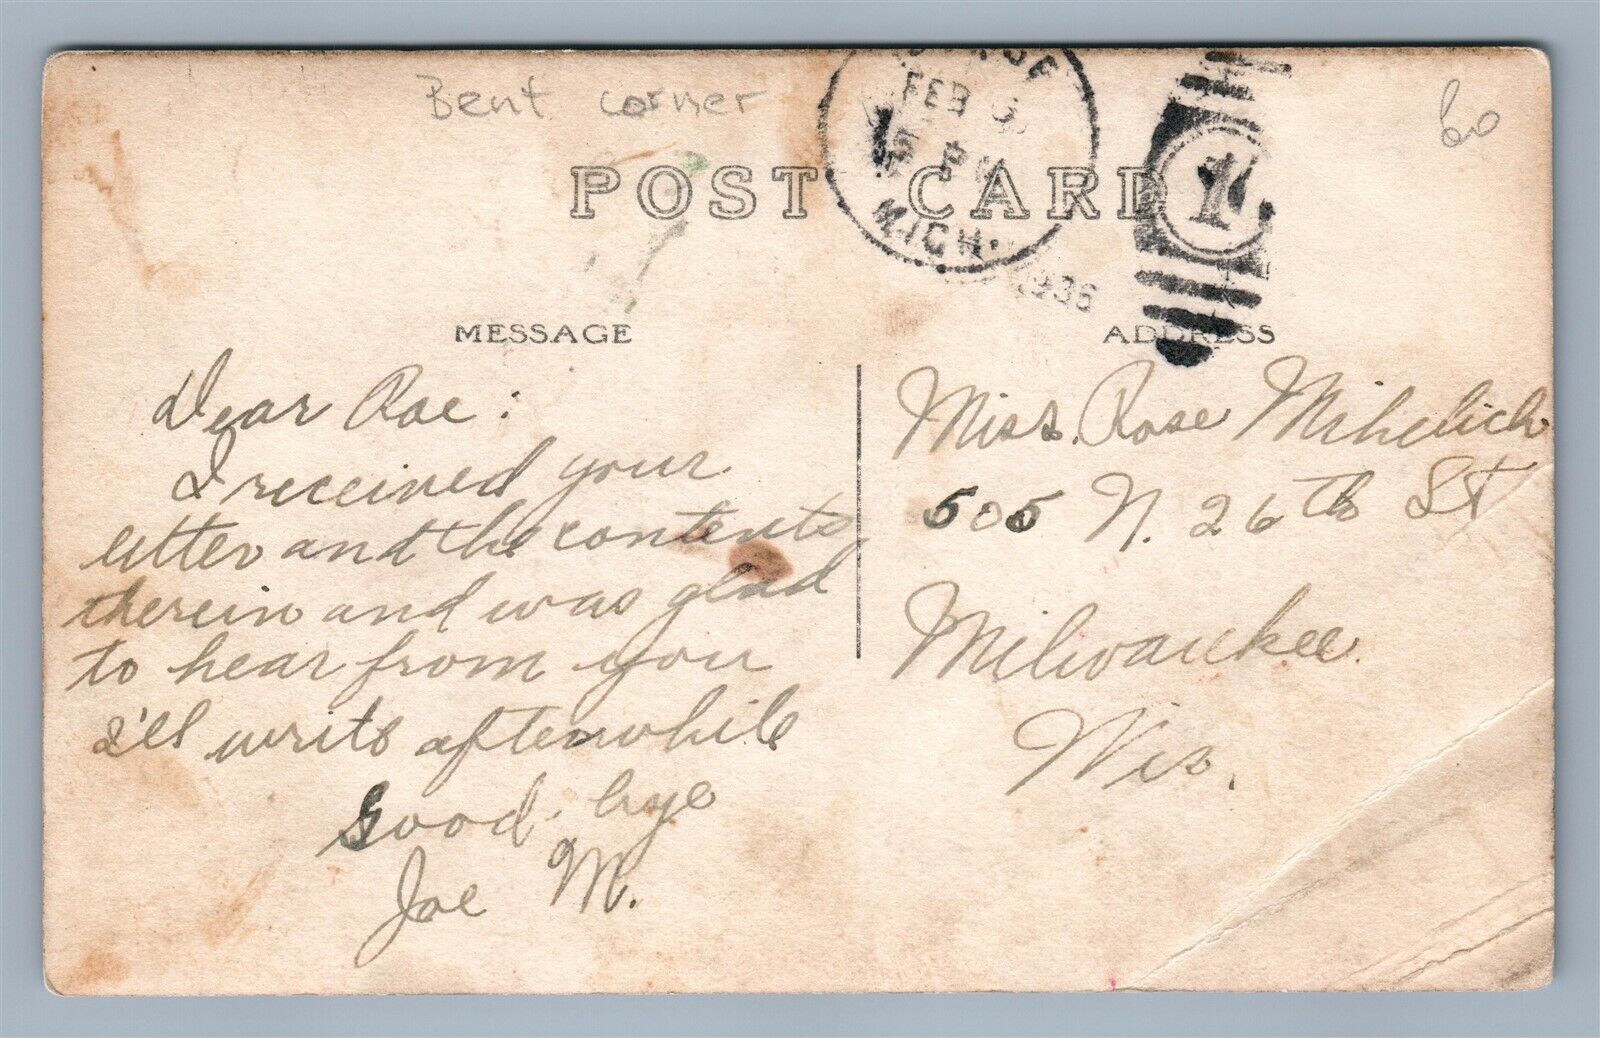 Bent corner
60
FEB
PM
MICH.
1936
1
POST CARD
MESSAGE
ADDRESS
Dear Roe:
I received your
letter and the contents
therein and was glad
to hear from you
I'll write afterwhile
Good-bye
Joe M.
Miss. Rose Mihelich
505 N. 26th St
Milwaukee
Wis.